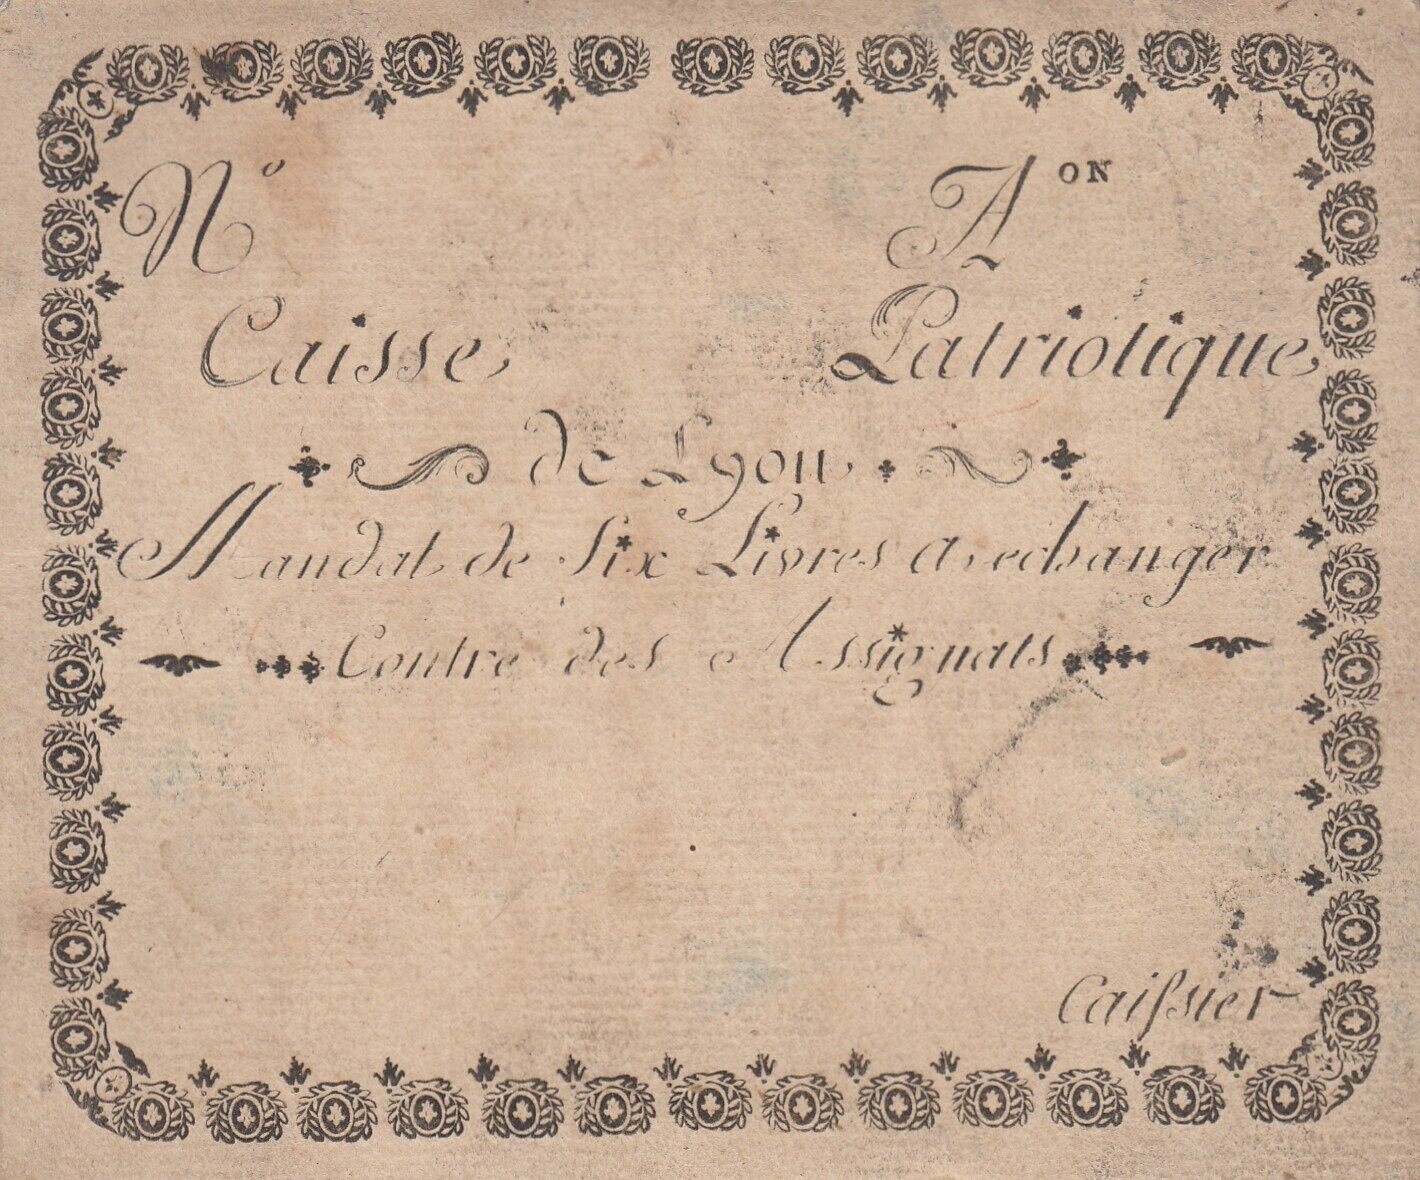 N° A ON
Caisse Patriotique
de Lyon
Mandat de Six Livres a echanger
Contre des Assignats
Caiſsier